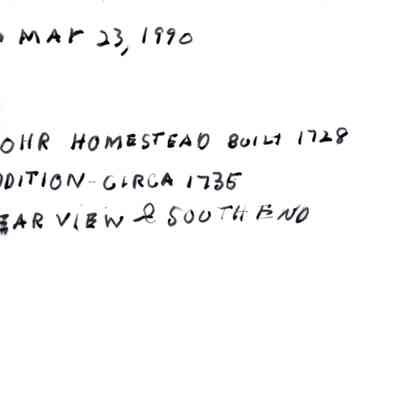 MAY 23, 1990
OHR HOMESTEAD BUILT 1728
DDITION - CIRCA 1735
EAR VIEW & SOUTH END